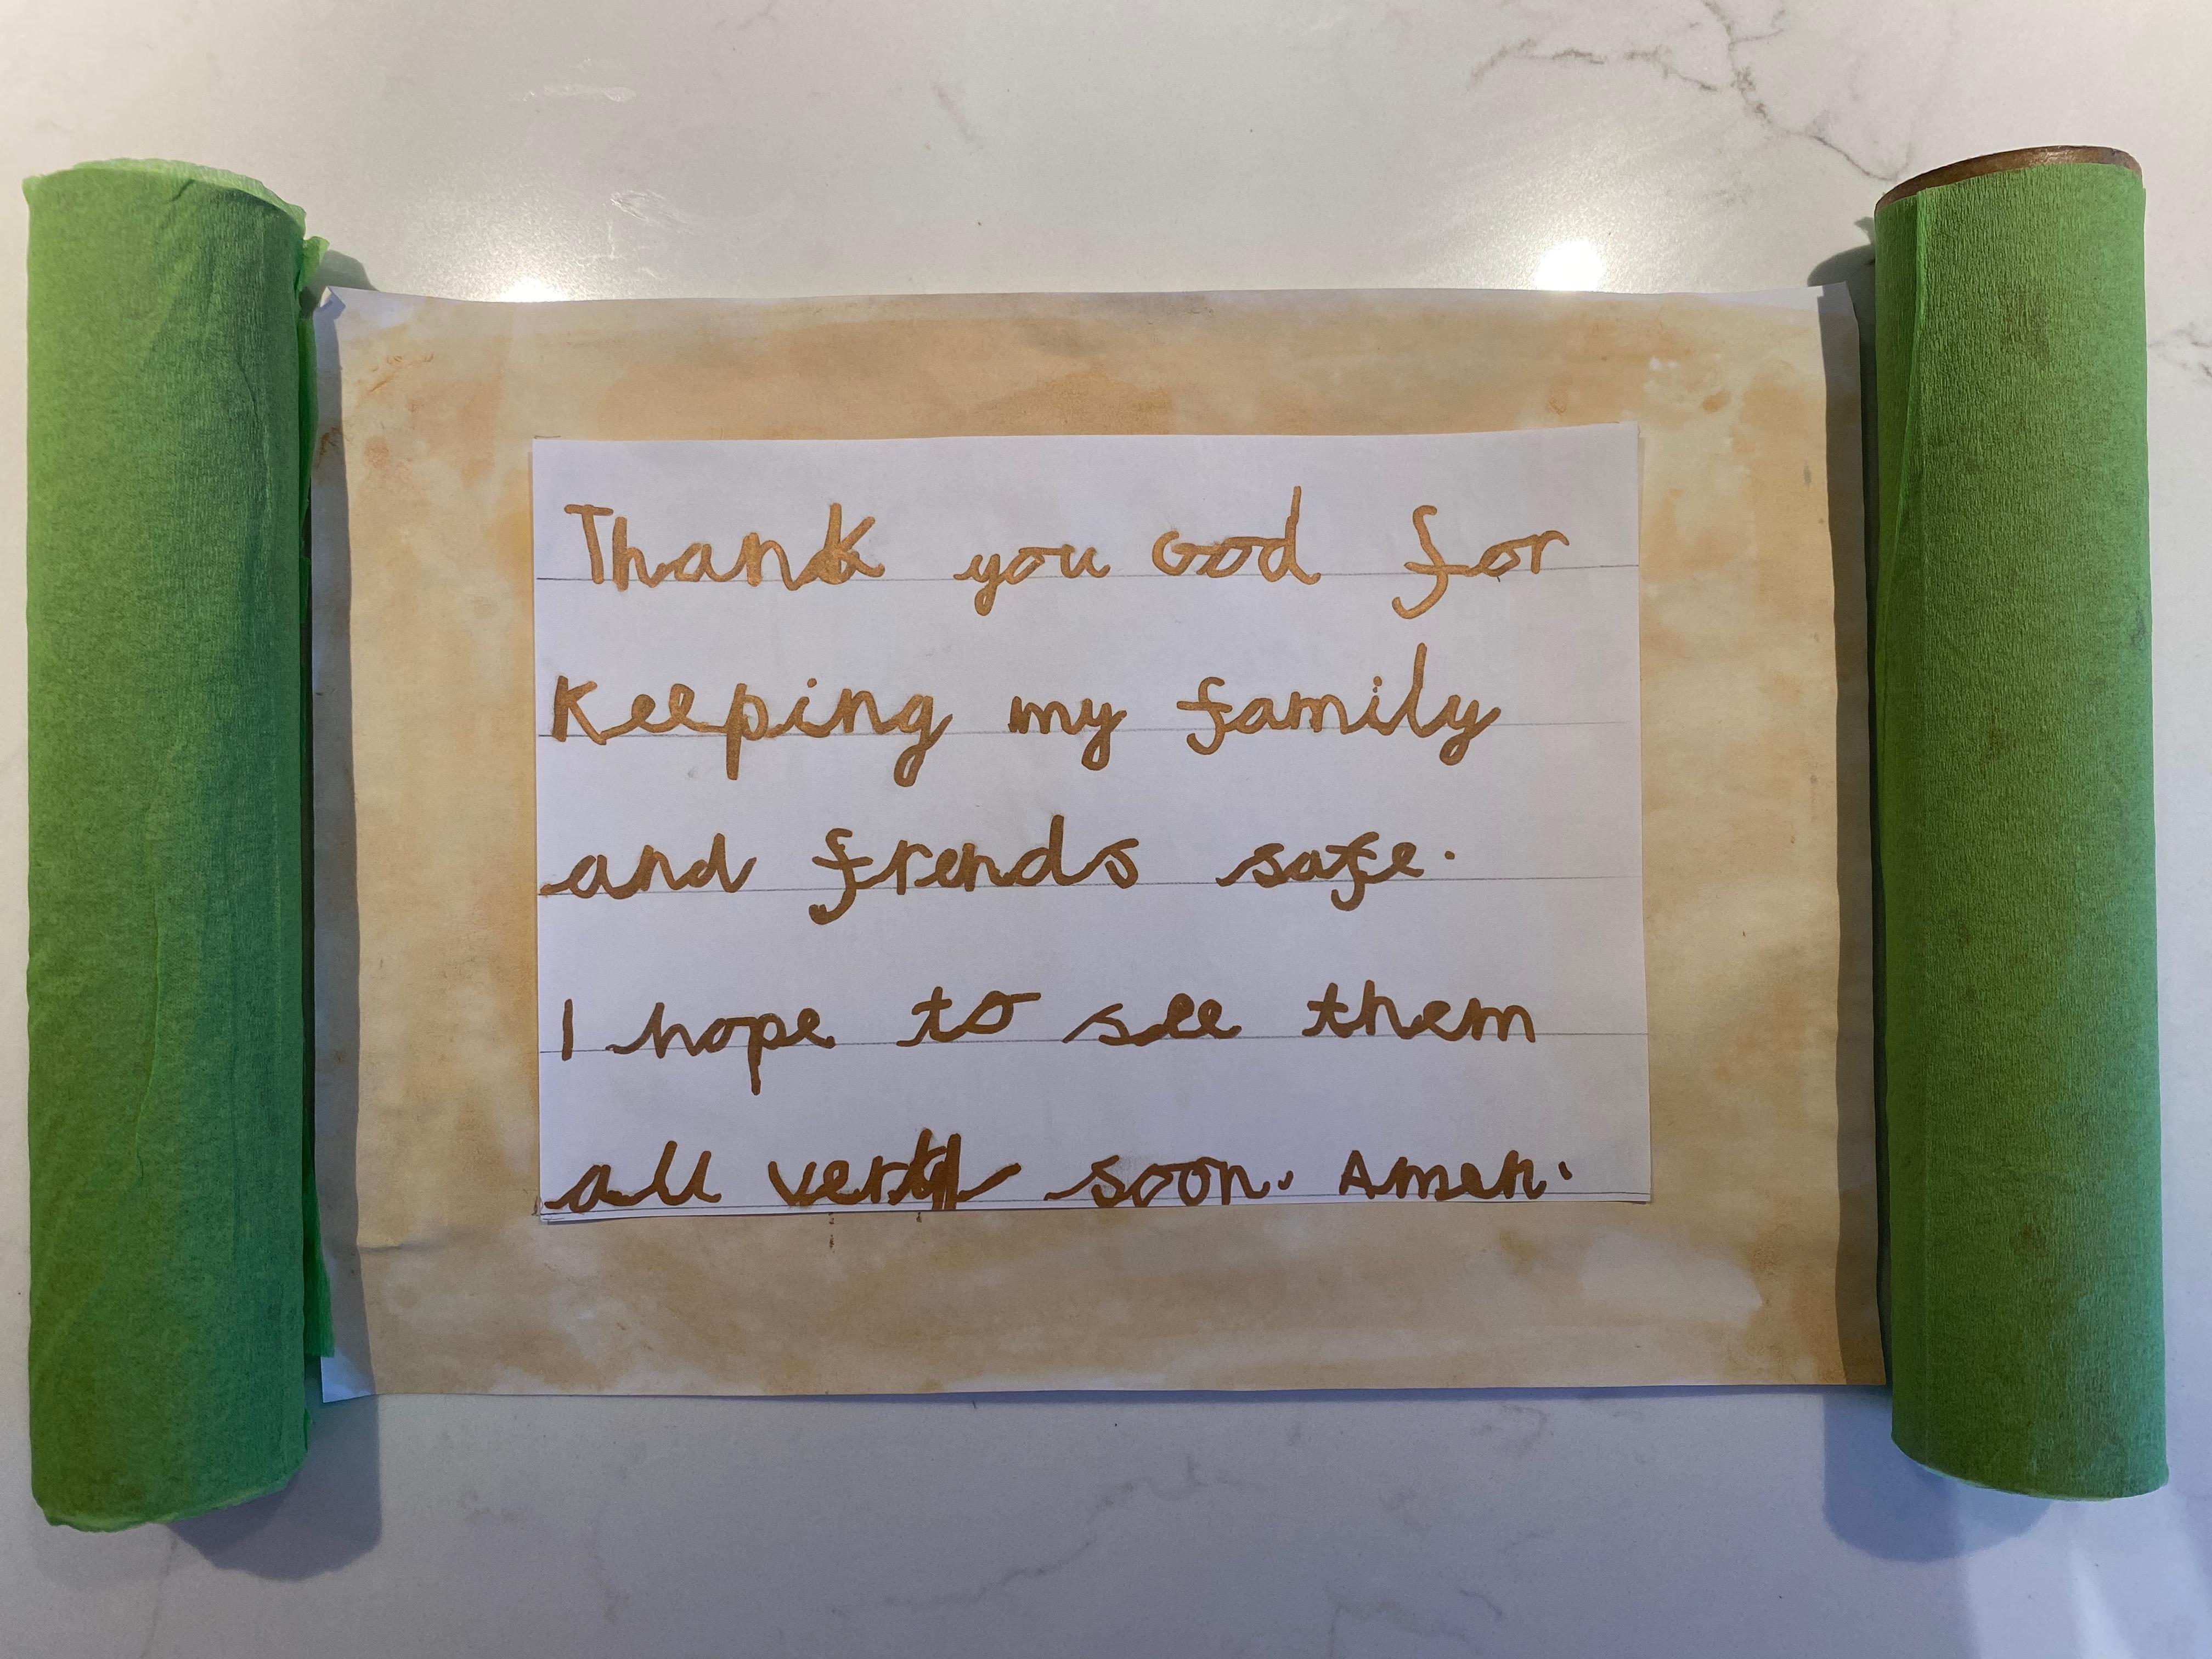 Thank you God for
Keeping my family
and frends safe.
I hope to see them
all very soon. Amen.